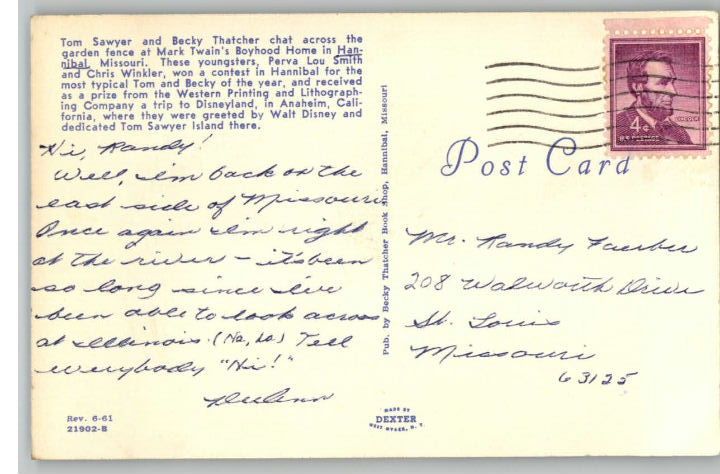 Tom Sawyer and Becky Thatcher chat across the
garden fence at Mark Twain's Boyhood Home in Han-
nibal, Missouri. These youngsters, Perva Lou Smith
and Chris Winkler, won a contest in Hannibal for the
most typical Tom and Becky of the year, and received
as a prize from the Western Printing and Lithograph-
ing Company a trip to Disneyland, in Anaheim, Cali-
fornia, where they were greeted by Walt Disney and
dedicated Tom Sawyer Island there.
Hi, Randy!
Well, I'm back on the
east side of Missouri.
Once again I'm right
at the river - it's been
so long since I've
been able to look across
at Illinois. (Ha, ha) Tell
everybody "Hi!"
Rev. 6-61
21902-B
Pub. by Becky Thatcher Book Shop, Hannibal, Missouri
MADE BY
DEXTER
WEST NYACK, N. Y.
LINCOLN
4¢
U.S. POSTAGE
Post Card
Mr. Randy Faerber
208 Walworth Drive
St. Louis
Missouri
63125